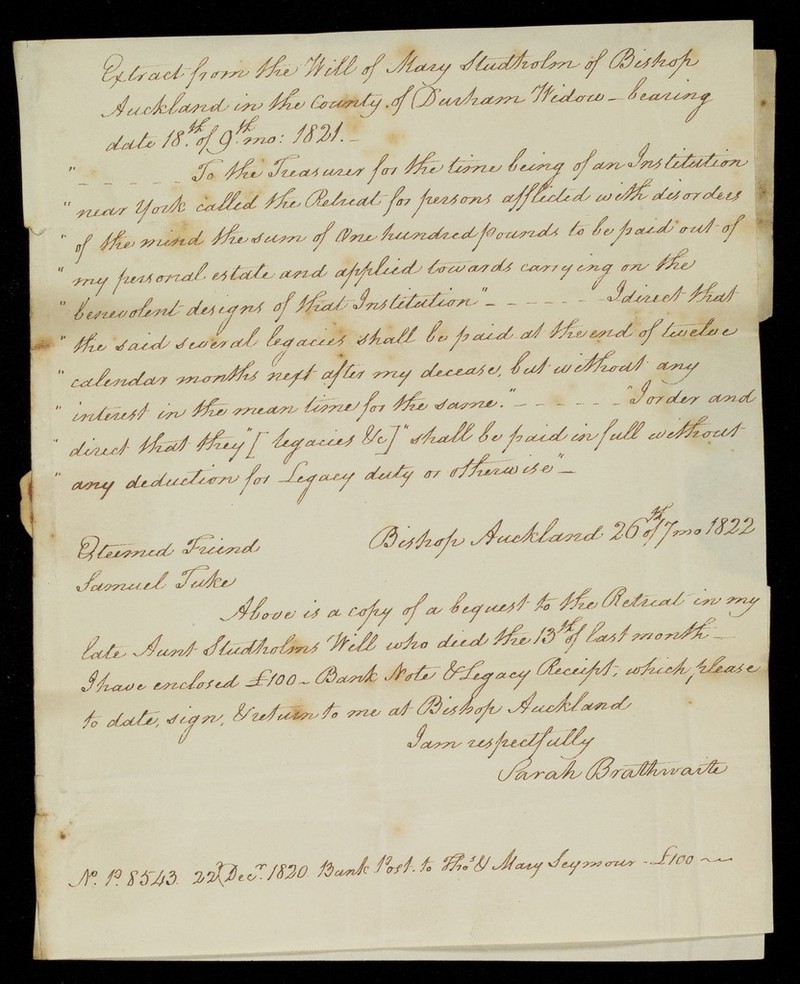 Extract from the Will of Mary Studholm of Bishop
Auckland in the County of Durham Widow - bearing
date 18.th of 9.th mo: 1821. -
" - - - - - - To the Treasurer for the time being of an Institution
" near York called the Retreat for persons afflicted with disorders
" of the mind the sum of One hundred pounds to be paid out of
" my personal estate and applied towards carrying on the
" benevolent designs of that Institution" - - - - - - - I direct that
" the said several legacies shall be paid at the end of twelve
" calendar months next after my decease, but without any
" interest in the mean time for the same." - - - - - - - "I order and
" direct that they" [ legacies &c ] "shall be paid in full without
" any deduction for Legacy duty or otherwise" -
Bishop Auckland 26th of 7 mo 1822
Esteemed Friend
Samuel Tuke
Above is a copy of a bequest to the Retreat in my
late Aunt Studholms Will who died the 13th of last month -
I have enclosed £100 - Bank Note & Legacy Receipt, which please
to date, sign, & return to me at Bishop Auckland
I am respectfully
Sarah Brathwaite
No. P. 8543. 22d Decr. 1820. Bank Post. to Thos. & Mary Seymour - £100 -